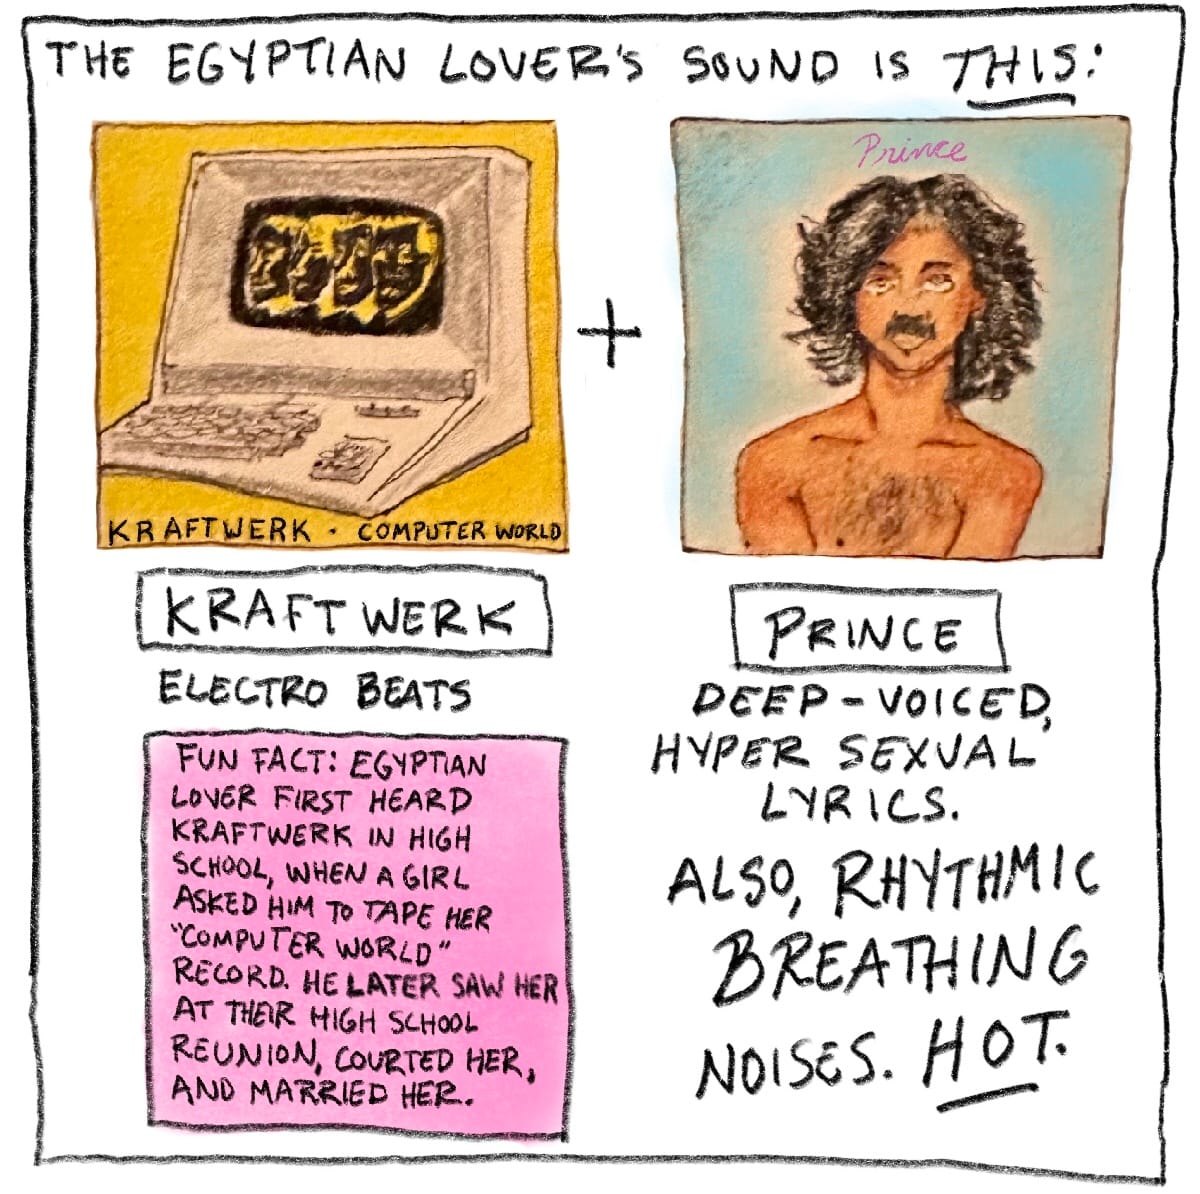 THE EGYPTIAN LOVER'S SOUND IS THIS:
KRAFTWERK · COMPUTER WORLD
+
Prince
KRAFTWERK
ELECTRO BEATS
FUN FACT: EGYPTIAN
LOVER FIRST HEARD
KRAFTWERK IN HIGH
SCHOOL, WHEN A GIRL
ASKED HIM TO TAPE HER
"COMPUTER WORLD"
RECORD. HE LATER SAW HER
AT THEIR HIGH SCHOOL
REUNION, COURTED HER,
AND MARRIED HER.
PRINCE
DEEP-VOICED,
HYPER SEXUAL
LYRICS.
ALSO, RHYTHMIC
BREATHING
NOISES. HOT.